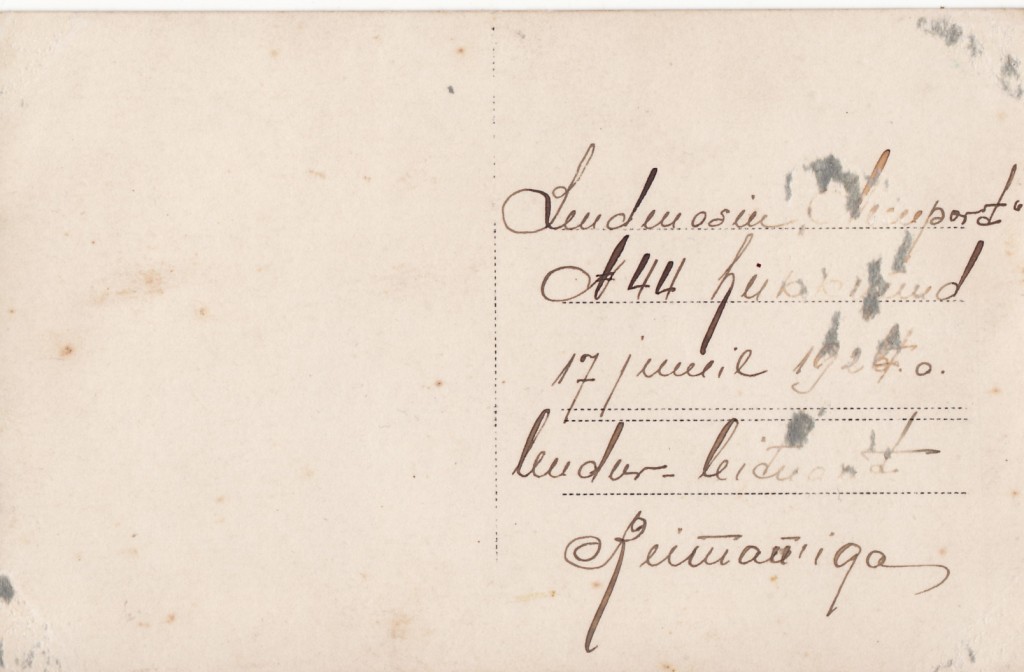 Lendmasin „Nieuport“
№ 44 hukkunud
17 juunil a.
lendur-leitnant
Reimanniga